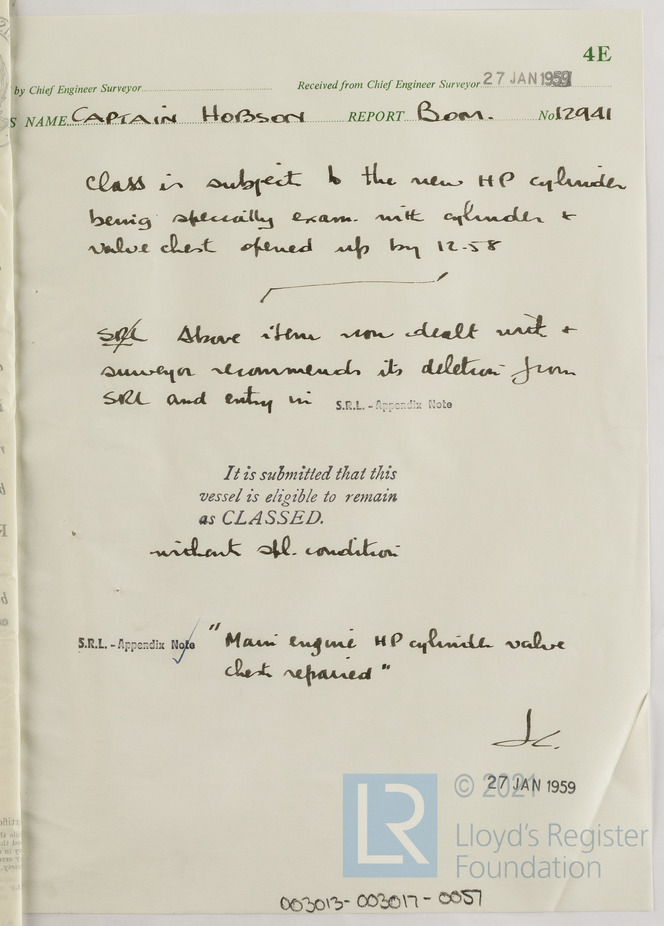 4E
by Chief Engineer Surveyor
Received from Chief Engineer Surveyor 27 JAN 1959
S NAME CAPTAIN HOBSON REPORT BOM. No 12941
Class is subject to the new HP cylinder
being specially exam. with cylinder &
valve chest opened up by 12-58
SRL Above item now dealt with &
surveyor recommends its deletion from
SRL and entry in S.R.L. - Appendix Note
It is submitted that this
vessel is eligible to remain
as CLASSED.
without spl. condition
S.R.L. - Appendix Note "Main engine HP cylinder valve
chest repaired"
27 JAN 1959
LR © 2021
Lloyd's Register
Foundation
003013-003017-0057